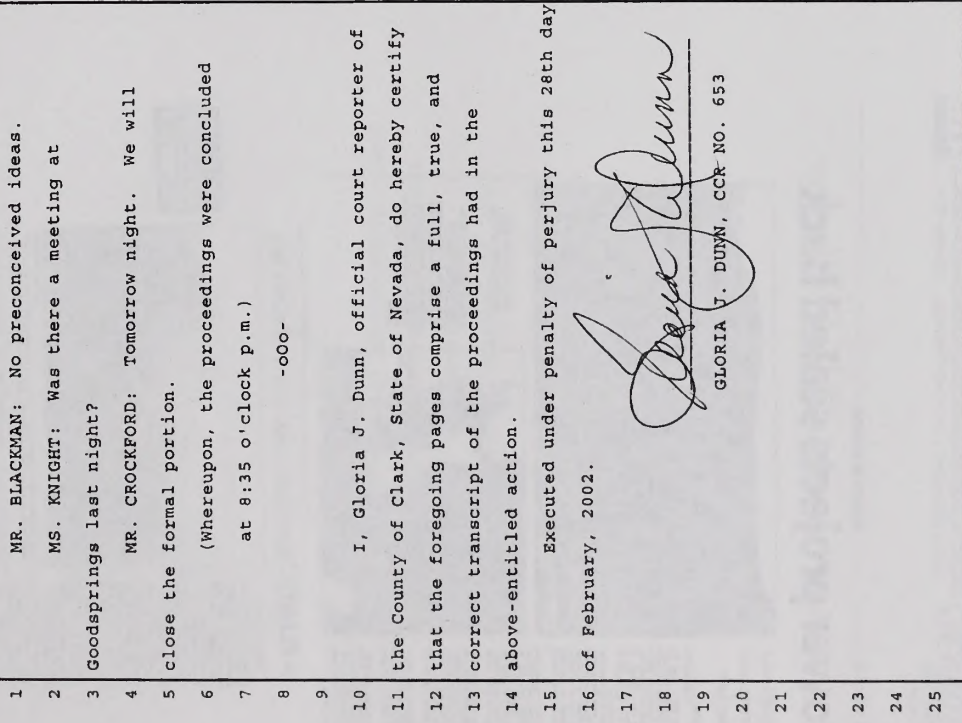 1 MR. BLACKMAN: No preconceived ideas.
2 MS. KNIGHT: Was there a meeting at
3 Goodsprings last night?
4 MR. CROCKFORD: Tomorrow night. We will
5 close the formal portion.
6 (Whereupon, the proceedings were concluded
7 at 8:35 o'clock p.m.)
8 -oOo-
9
10 I, Gloria J. Dunn, official court reporter of
11 the County of Clark, State of Nevada, do hereby certify
12 that the foregoing pages comprise a full, true, and
13 correct transcript of the proceedings had in the
14 above-entitled action.
15 Executed under penalty of perjury this 28th day
16 of February, 2002.
17
18 Gloria J Dunn
19 GLORIA J. DUNN, CCR NO. 653
20
21
22
23
24
25